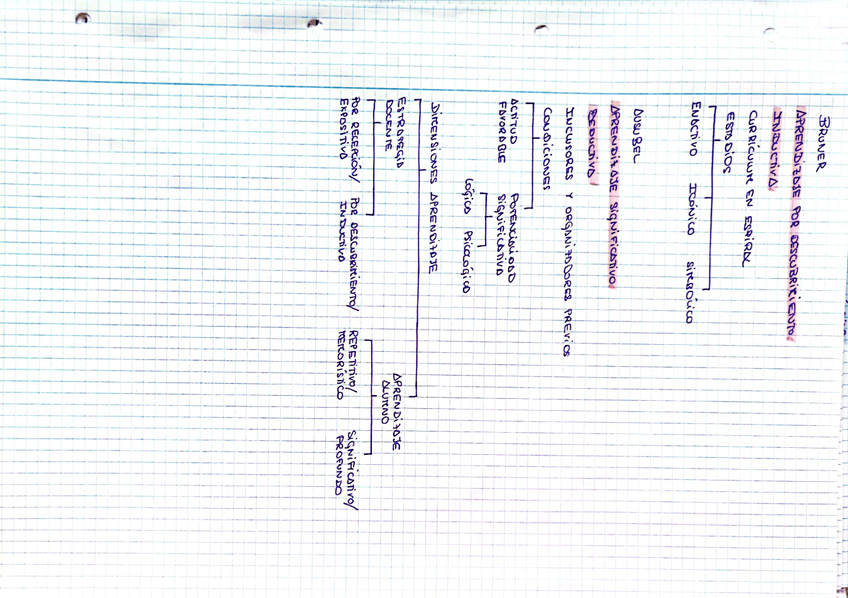 BRUNER
APRENDIZAJE POR DESCUBRIMIENTO/
INDUCTIVA
CURRÍCULUM EN ESPIRAL
ESTADIOS
ENACTIVO ICÓNICO SIMBÓLICO
AUSUBEL
APRENDIZAJE SIGNIFICATIVO/
DEDUCTIVA/
INCLUSORES Y ORGANIZADORES PREVIOS
CONDICIONES
ACTITUD POTENCIALIDAD
FAVORABLE SIGNIFICATIVA
LÓGICO PSICOLÓGICO
DIMENSIONES APRENDIZAJE
ESTRATEGIA APRENDIZAJE
DOCENTE ALUMNO
POR RECEPCIÓN/ POR DESCUBRIMIENTO/ REPETITIVO/ SIGNIFICATIVO/
EXPOSITIVO INDUCTIVO MEMORÍSTICO PROFUNDO